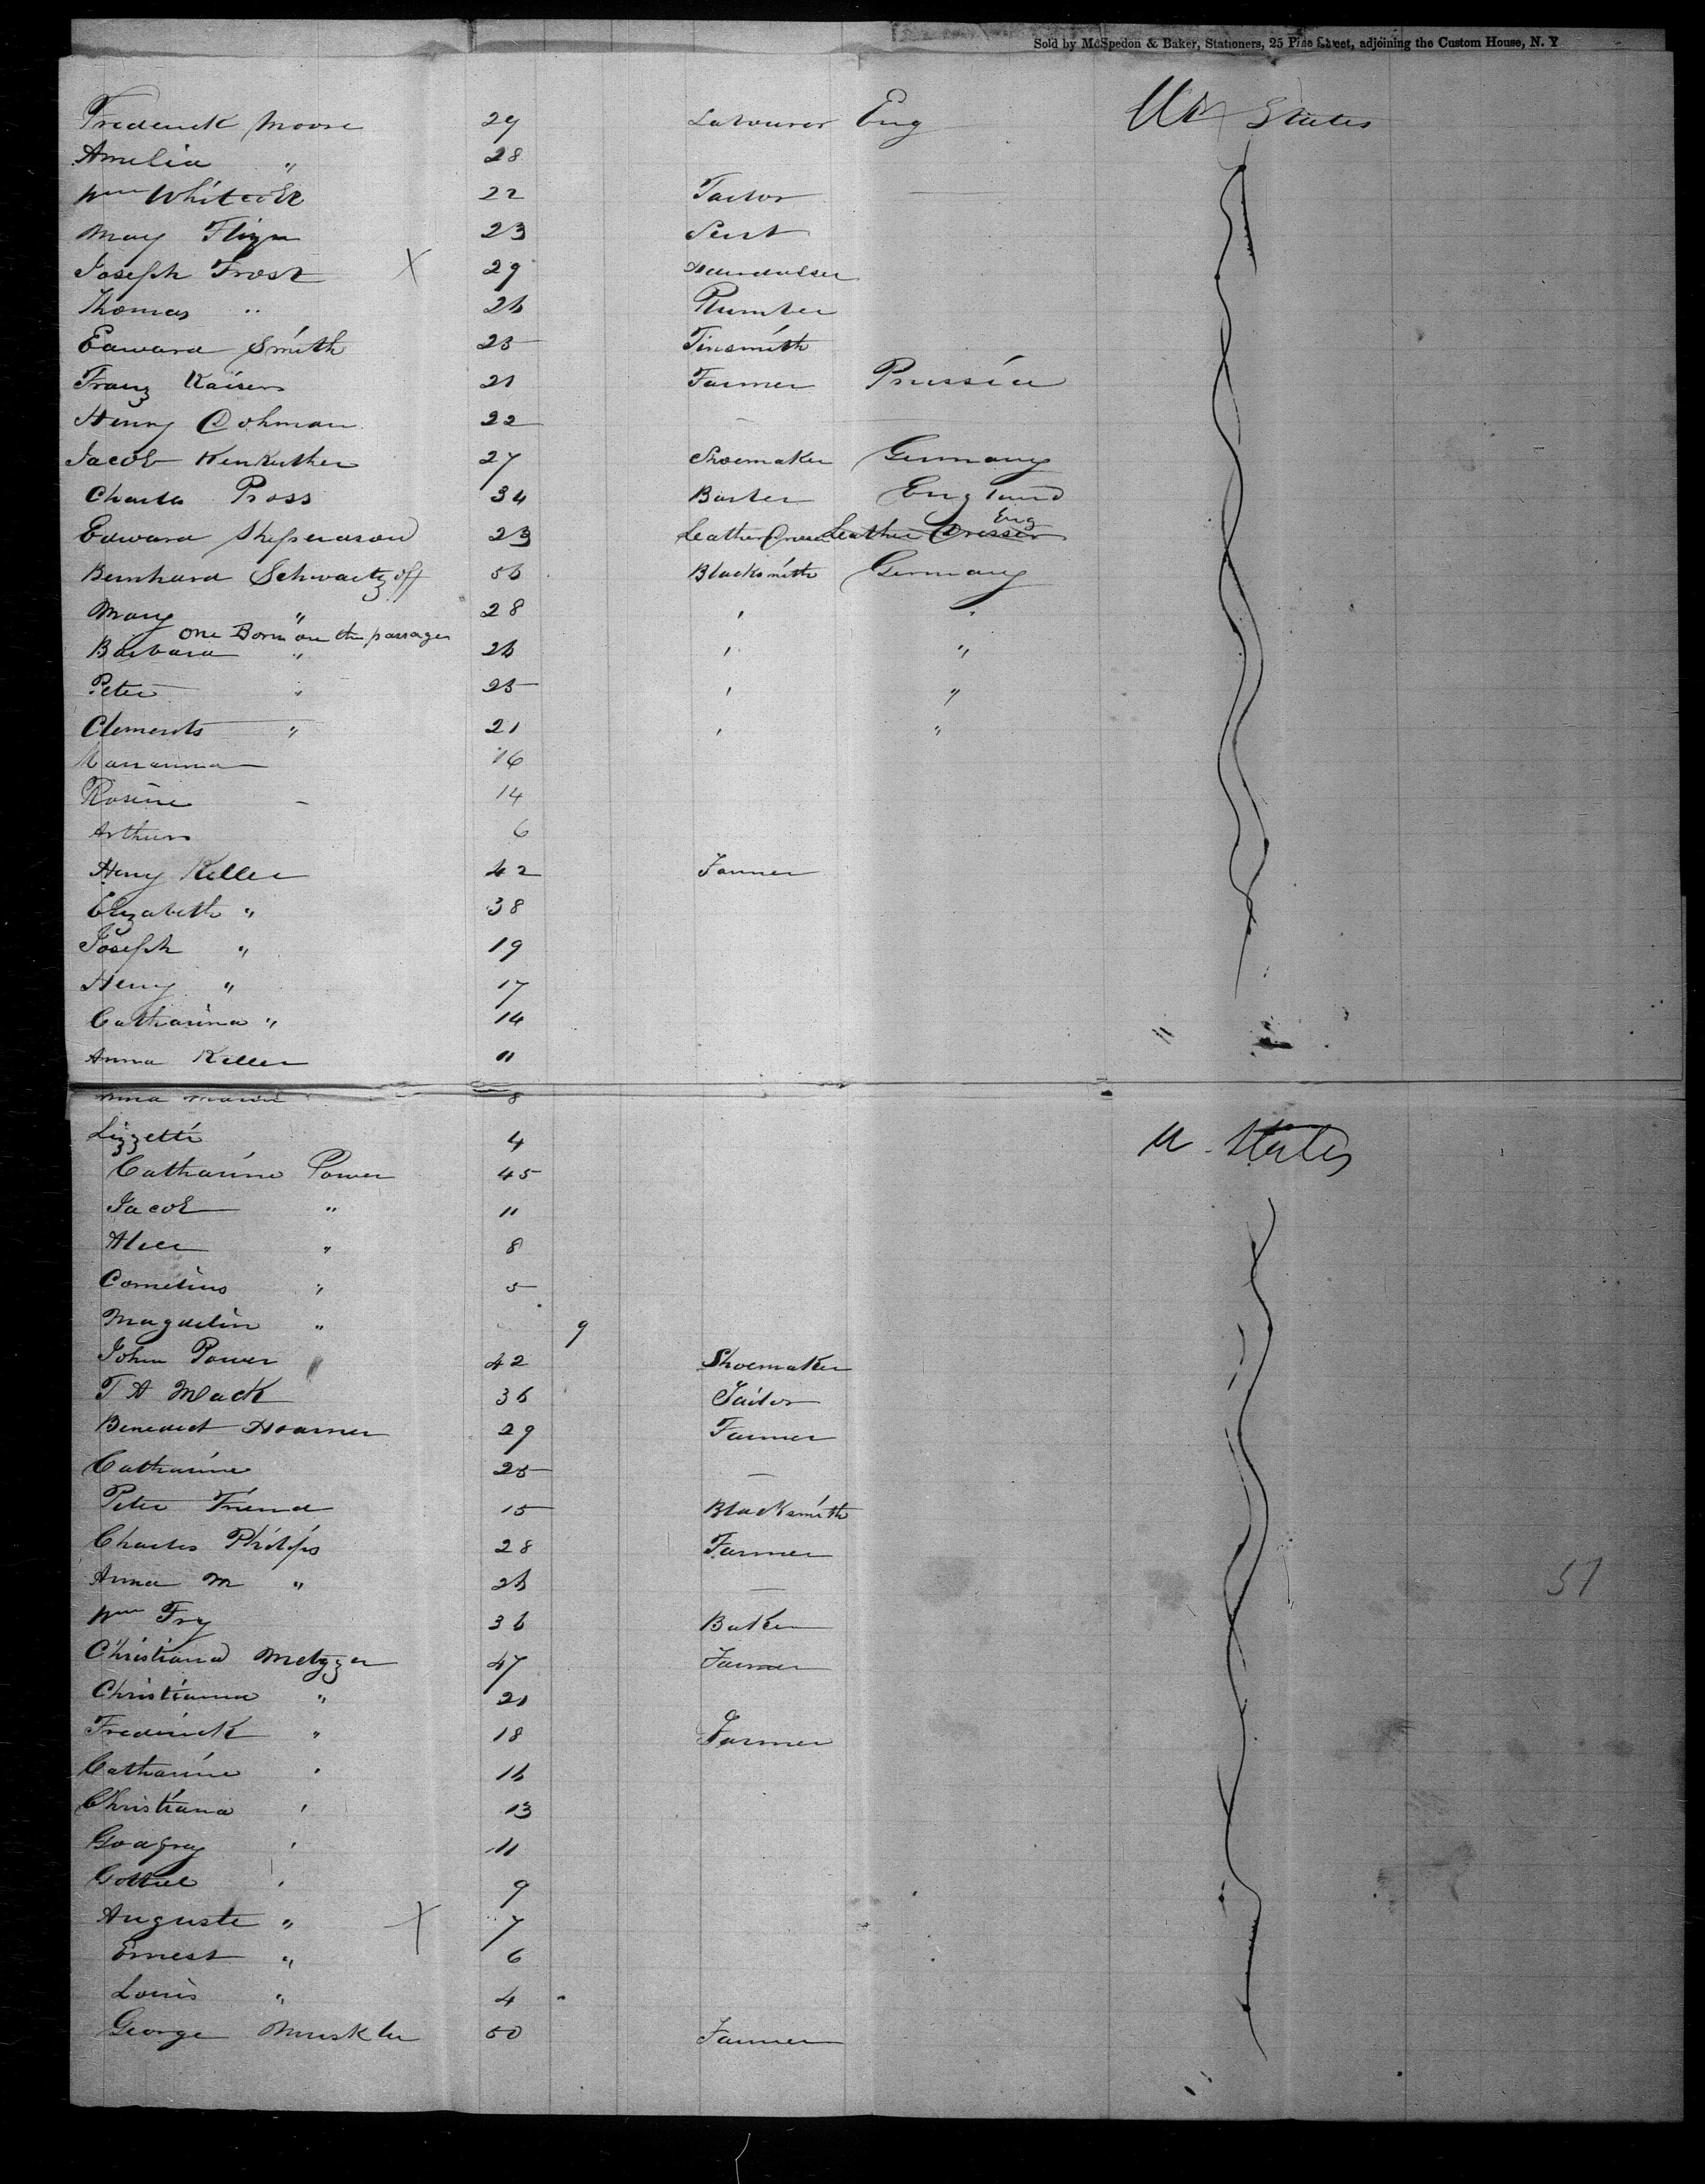 Sold by McSpedon & Baker, Stationers, 25 Pine Street, adjoining the Custom House, N. Y
Frederick Moore 29 Labourer Eng Un States
Amelia " 28
Wm 22 Tailor
Mary 23 Servt
Joseph Frost X 29
Thomas " 26 Plumber
Edward Smith 25 Tinsmith
Franz Kaiser 21 Farmer Prussia
Henry Dohman 22 —
Jacob 27 Shoemaker Germany
Charles Pross 34 Barber England
Edward 23 Leather Dresser Leather Dresser Eng
Bernhard Schwartzoff 56 Blacksmith Germany
Mary " 28 " "
one Born on the passage
Barbara " 26 " "
Peter " 25 " "
Clements " 21 " "
Marianna 16
Rosine - 14
Arthur 6
Henry Keller 42 Farmer
Elizabeth " 38
Joseph " 19
Henry " 17
Catharina " 14
Anna Keller 11
Anna Maria 8
Lizzette 4 U States
Catharine Power 45
Jacob " 11
Alice " 8
Cornelius " 5
Magdelin " 9
John Power 42 Shoemaker
T A Mack 36 Tailor
Benedict 29 Farmer
Catharine 25 —
Peter Friend 15 Blacksmith
Charles Philips 28 Farmer
Anna M " 26 — 51
Wm Fry 36 Baker
Christiana Metzger 47 Farmer
Christianna " 21
Frederick " 18 Farmer
Catharine " 16
Christiana " 13
Godfrey " 11
" 9
Auguste " X 7
Ernest " 6
Louis " 4
George 50 Farmer